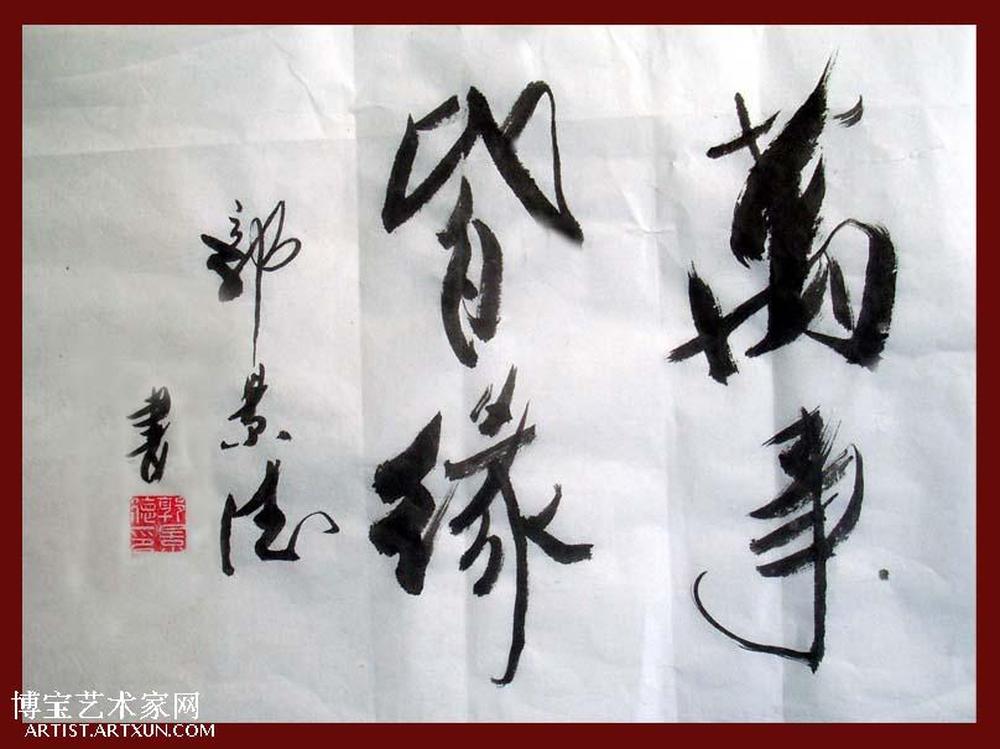 萬事
皆緣
郭景德
書
郭景德印
博宝艺术家网
ARTIST.ARTXUN.COM